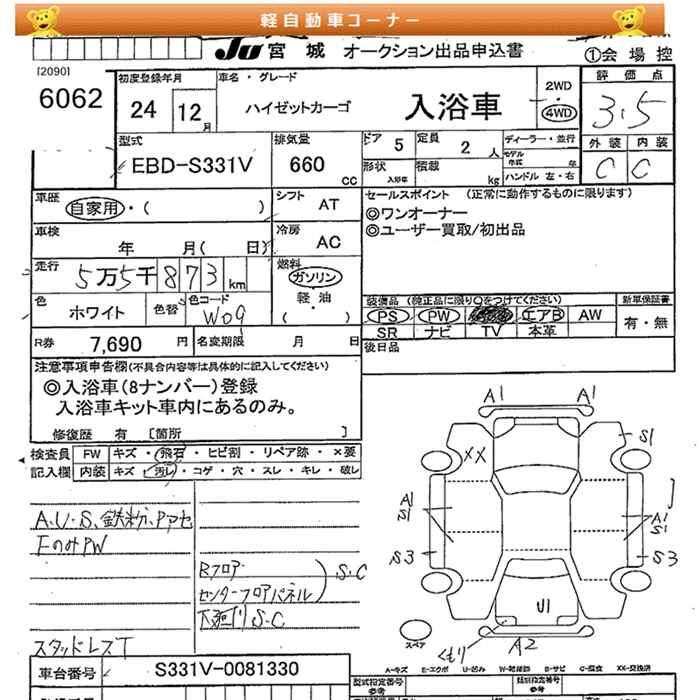 軽自動車コーナー
JU 宮城 オークション出品申込書
①会場控
[2090]
6062
初度登録年月
24 12月
車名・グレード
ハイゼットカーゴ 入浴車
2WD
・
4WD
評価点
3.5
型式
EBD-S331V
排気量
660 CC
ドア 5
定員 2 人
ディーラー・並行
モデル年式 年
形状 入浴車
積載 kg
ハンドル 左・右
外装 内装
C C
車歴
自家用・( )
シフト AT
セールスポイント (正常に動作するものに限ります)
◎ワンオーナー
◎ユーザー買取/初出品
車検
年 月( 日)
冷房 AC
走行 5万5千873 km
燃料
ガソリン
・
軽油
( )
色 ホワイト
色替
色コード W09
装備品 (純正品に限り○をつけてください)
PS PW エアB AW
SR ナビ TV 本革
新車保証書
有・無
R券 7,690 円
名変期限 月 日
後日品
注意事項申告欄(不具合内容等は具体的に記入してください)
◎入浴車(8ナンバー)登録
入浴車キット車内にあるのみ。
修復歴 有 [箇所 ]
検査員記入欄
FW キズ・飛石・ヒビ割・リペア跡・×要
内装 キズ・汚レ・コゲ・穴・スレ・キレ・破レ
A.U.S、鉄粉、Pアセ
FのみPW
Rフロア
センターフロアパネル
S.C
下廻り S.C
スタッドレスT
A1 A1
S1
XX
A1
S1
A1
S1
S3
S3
U1
A2
くもり
スペア
A-キズ E-エクボ U-凹み W-補修跡 B-サビ C-腐食 XX-交換済
車台番号 S331V-0081330
型式指定番号
参考
類別指定番号
参考